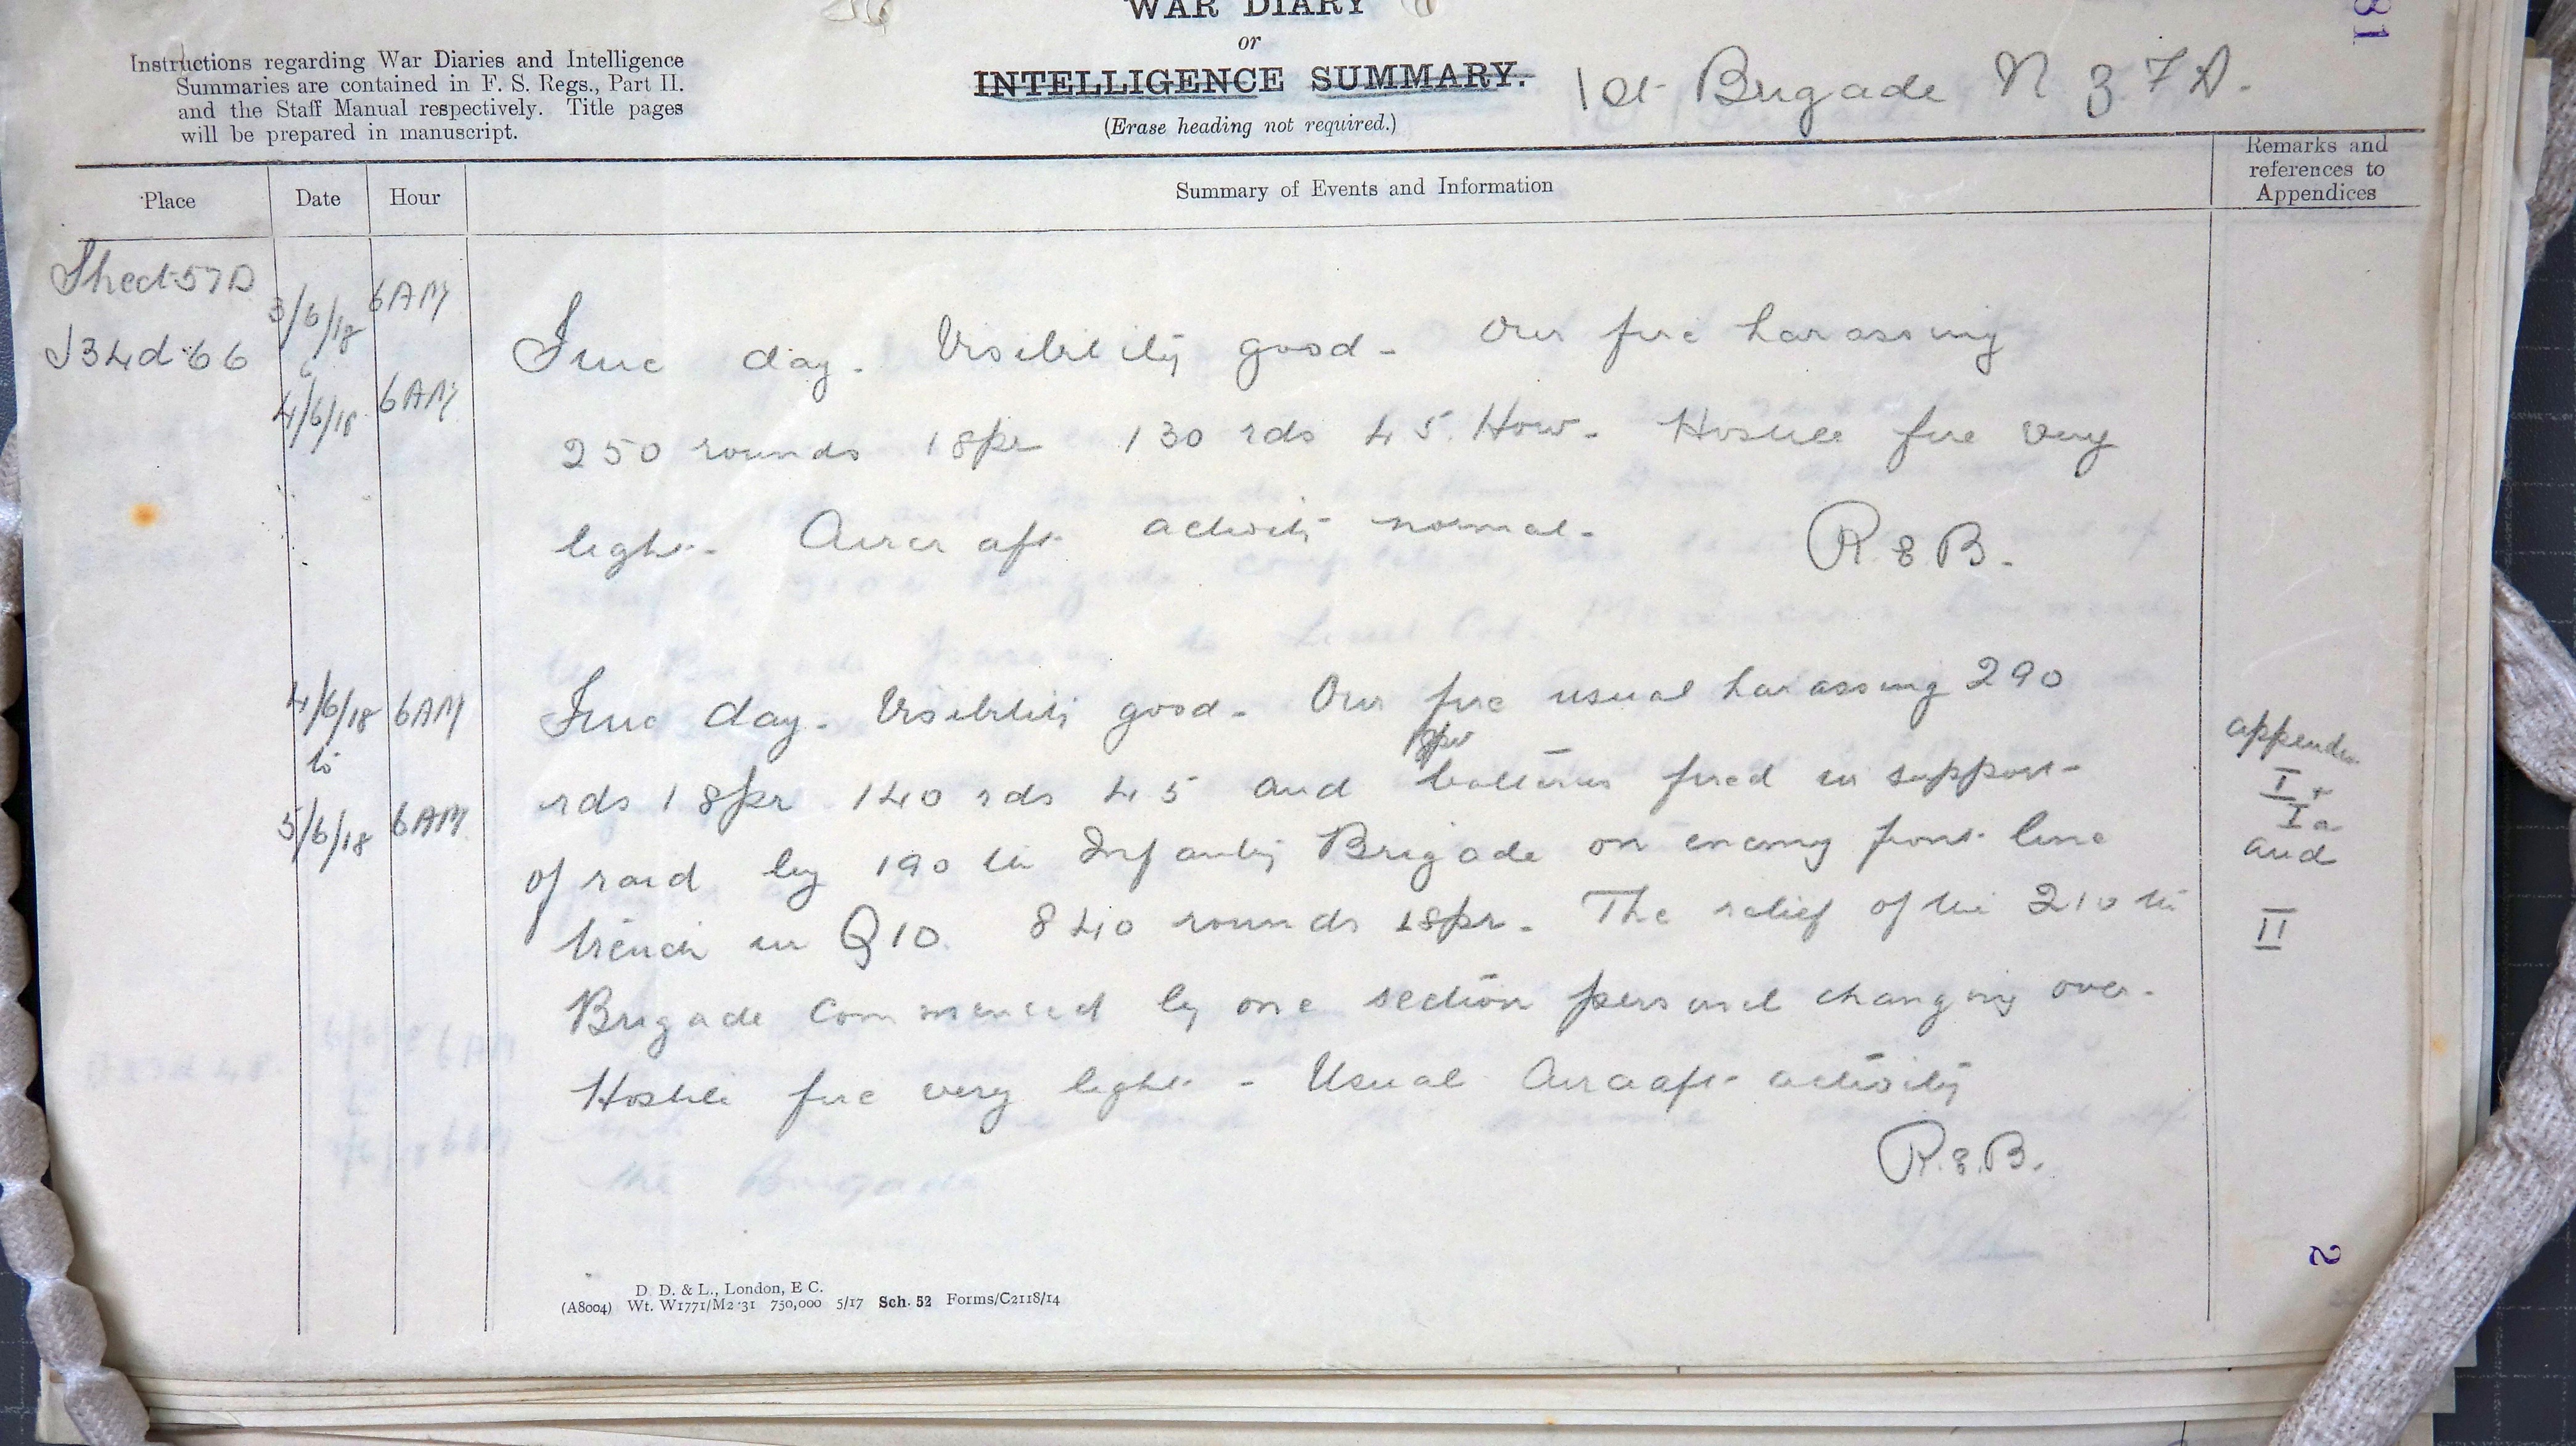 WAR DIARY
or
INTELLIGENCE SUMMARY.
(Erase heading not required.)
Instructions regarding War Diaries and Intelligence
Summaries are contained in F. S. Regs., Part II.
and the Staff Manual respectively. Title pages
will be prepared in manuscript.
1st Brigade N Z F A.
81
Place Date Hour Summary of Events and Information Remarks and
references to
Appendices
Sheet 57D
J34d 66
3/6/18 6AM
4/6/18 6AM
Fine day. Visibility good - Our fire harassing
250 rounds 18pr 130 rds 4 5. How. Hostile fire very
light. Aircraft activity normal.
4/6/18 6AM
to
5/6/18 6AM
Fine day. Visibility good. Our fire usual harassing 290
18pr
rds 18pr 140 rds 4 5 and batteries fired in support
of raid by 190 th Infantry Brigade on enemy front line
trench in Q10. 840 rounds 18pr. The relief of the 210 th
Brigade commenced by one section personel changing over.
Hostile fire very light - Usual Aircraft activity
appendix
I +
Ia
and
II
2
D. D. & L., London, E C.
(A8004) Wt. W1771/M2 31 750,000 5/17 Sch. 52 Forms/C2118/14